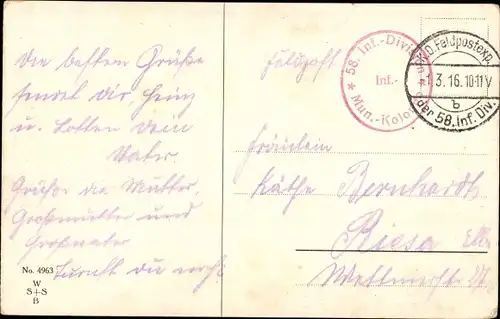 Die besten Grüße
sendet dir, Heinz
u. Lotten dein
Vater.
Grüße die Mutter,
Großmutter und
Großvater
Turnst du noch?
No. 4963
W
S+S
B
Feldpost
* 58. Inf.-Division *
Inf.-
Mun.-Kolo
K.D. Feldpostexp.
1.3.16.10-11V
b
der 58. Inf. Div.
Fräulein
Käthe Bernhardt
Riesa Elbe